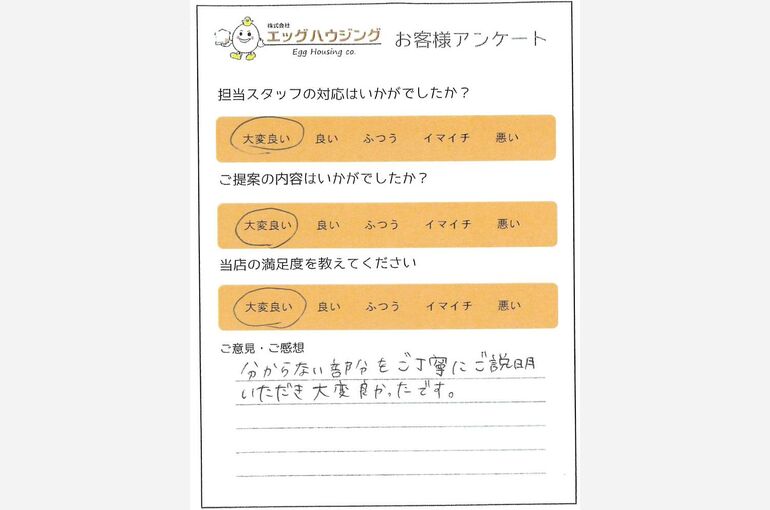 株式会社
エッグハウジング
Egg Housing co.
お客様アンケート
担当スタッフの対応はいかがでしたか？
大変良い 良い ふつう イマイチ 悪い
ご提案の内容はいかがでしたか？
大変良い 良い ふつう イマイチ 悪い
当店の満足度を教えてください
大変良い 良い ふつう イマイチ 悪い
ご意見・ご感想
分からない部分をご丁寧にご説明
いただき大変良かったです。